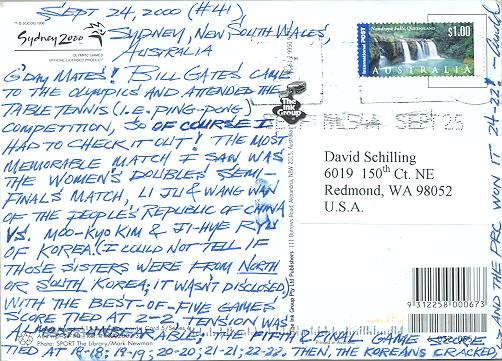 SEPT 24, 2000 (#41)
SYDNEY, NEW SOUTH WALES,
AUSTRALIA
© SOCOG 1996
Sydney 2000
OLYMPIC GAMES
OFFICIAL LICENSED PRODUCT
G'DAY MATES! BILL GATES CAME
TO THE OLYMPICS AND ATTENDED THE
TABLE TENNIS (I.E. PING-PONG)
COMPETITION, SO OF COURSE I
HAD TO CHECK IT OUT! THE MOST
MEMORABLE MATCH I SAW WAS
THE WOMEN'S DOUBLES SEMI-
FINALS MATCH, LI JU & WANG NAN
OF THE PEOPLE'S REPUBLIC OF CHINA
VS. MOO-KYO KIM & JI-HYE RYU
OF KOREA. (I COULD NOT TELL IF
THOSE SISTERS WERE FROM NORTH
OR SOUTH KOREA; IT WASN'T DISCLOSED)
WITH THE BEST-OF-FIVE GAMES
SCORE TIED AT 2-2, TENSION WAS
THE FIFTH & FINAL GAME
TIED AT 18-18; 19-19; 20-20; 21-21; 22-22. THEN, THE KOREANS CRACKED
AND THE PRC WON IT 24-22!
Photo: SPORT The Library/Mark Newman
The Ink Group
The Ink Group Pty Ltd Publishers 111 Burrows Road, Alexandria, NSW 2015, Australia
International POST
Nandroya Falls, Queensland
$1.00
AUSTRALIA
SEPT 25
David Schilling
6019 150th Ct. NE
Redmond, WA 98052
U.S.A.
9 312258 000673